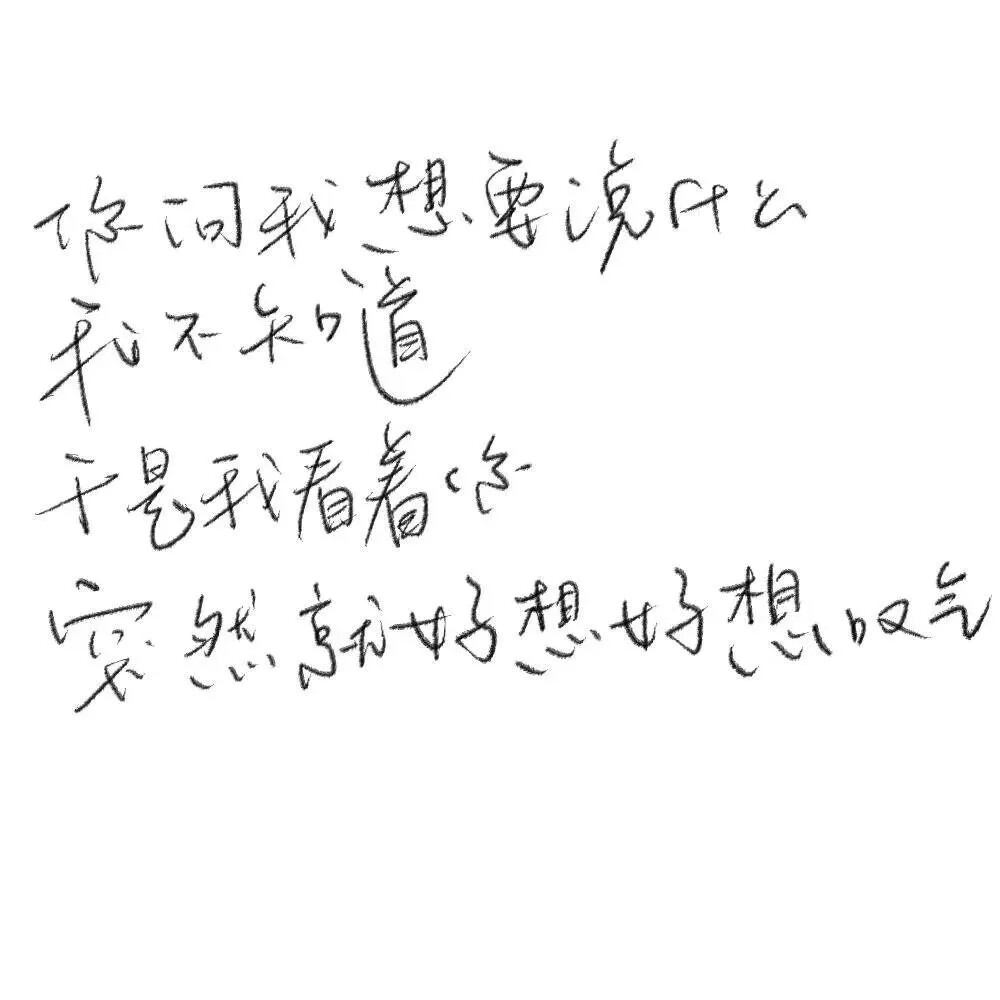 你问我想要说什么
我不知道
于是我看着你
突然就好想好想叹气